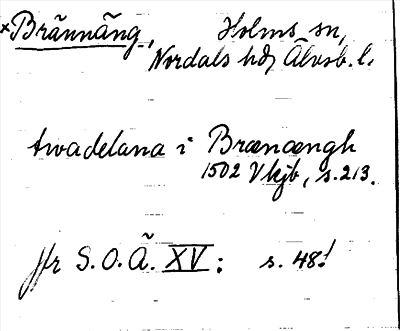 ×Brännäng, Holms sn,
Nordals hd, Älvsb. l.
twadelana i Brænængh
1502 Vkjb, s. 213.
Jfr S.O.Ä. XV: s. 48!